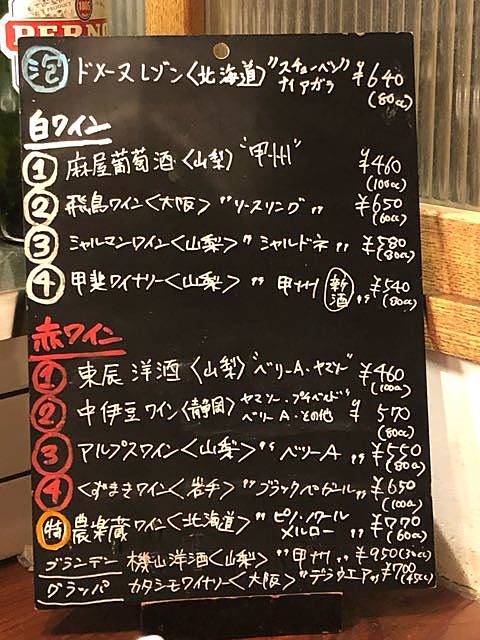 PERNO
泡 ドメーヌ レゾン〈北海道〉"スチューベン ナイアガラ ¥640 (80cc)
白ワイン
① 麻屋葡萄酒〈山梨〉"甲州" ¥460 (100cc)
② 飛鳥ワイン〈大阪〉"リースリング" ¥650 (60cc)
③ シャルマンワイン〈山梨〉"シャルドネ" ¥580 (80cc)
④ 甲斐ワイナリー〈山梨〉"甲州 新酒" ¥540 (80cc)
赤ワイン
① 東辰洋酒〈山梨〉"ベリーA・ヤマソー" ¥460 (100cc)
② 中伊豆ワイン〈静岡〉ヤマソー・プティベルド ベリーA・その他 ¥570 (80cc)
③ アルプスワイン〈山梨〉"ベリーA" ¥550 (80cc)
④ くずまきワイン〈岩手〉"ブラックペガール" ¥650 (100cc)
特 農楽蔵ワイン〈北海道〉"ピノ・ノワール メルロー" ¥770 (60cc)
ブランデー 機山洋酒〈山梨〉"甲州" ¥950 (30cc)
グラッパ カタシモワイナリー〈大阪〉"デラウエア" ¥700 (45cc)